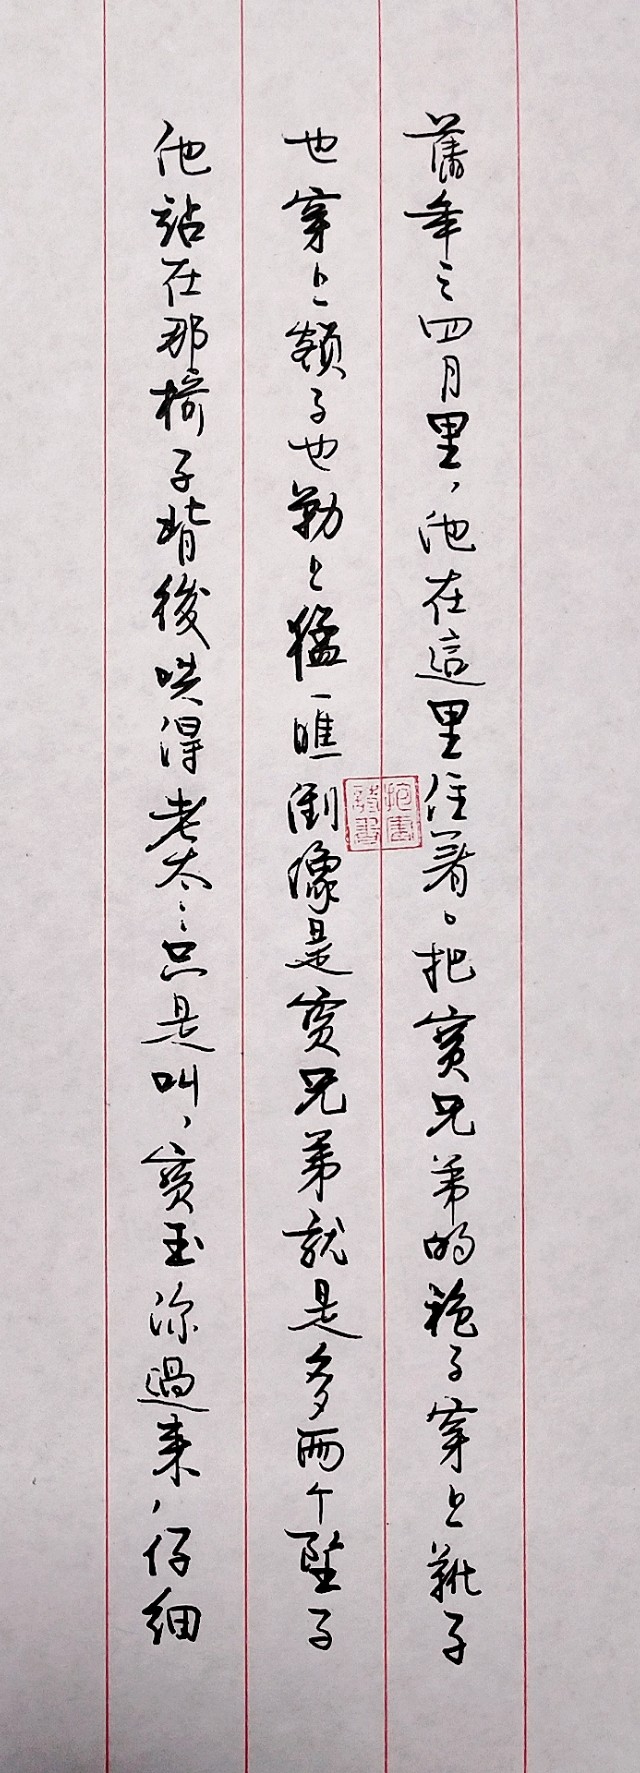 舊年三四月里，他在這里住着。把寳兄弟的袍子穿上靴子
也穿上額子也勒上猛一瞧倒像是寳兄弟就是多兩个墜子
他站在那椅子背後哄得老太〻只是叫，寳玉你過来，仔細